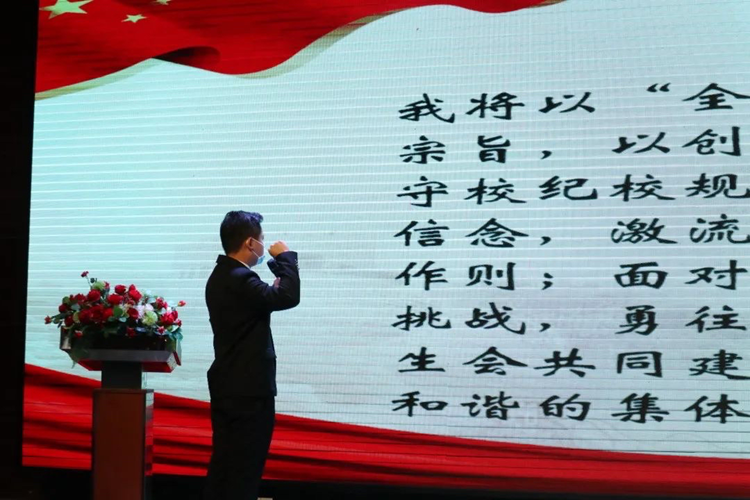 我将以“全
宗旨，以创
守校纪校规
信念，激流
作则；面对
挑战，勇往
生会共同建
和谐的集体